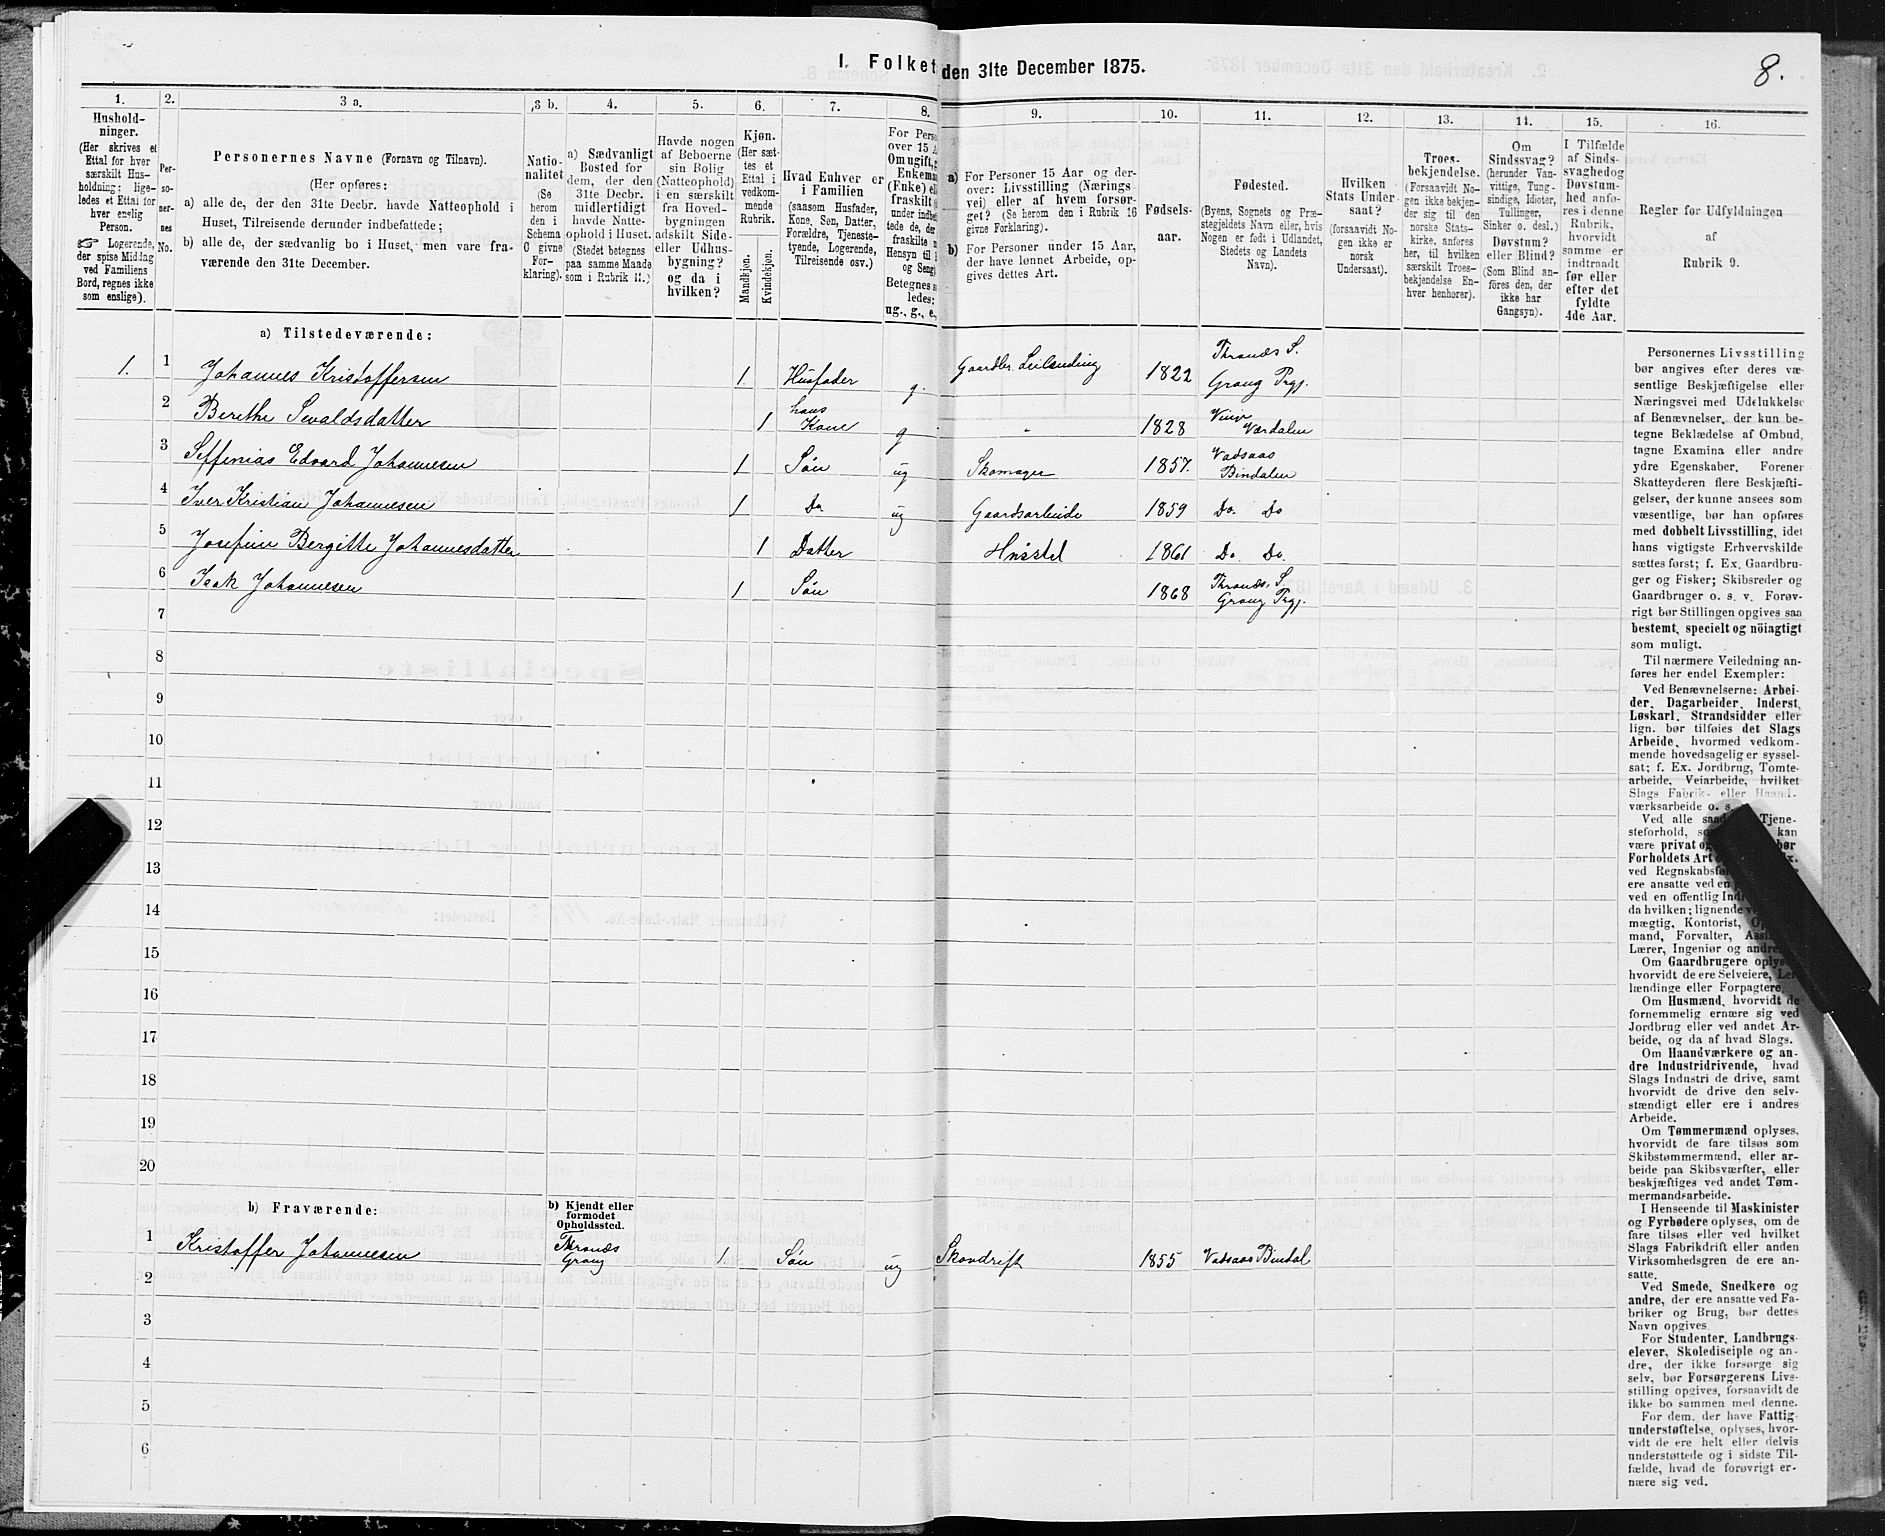 I. Folket
den 31te December 1875.
8.
1.
Hushold-
ninger.
(Her skrives et
Ettal for hver
særskilt Hus-
holdning; lige-
ledes et Ettal for
hver enslig
Person.
☞ Logerende,
der spise Middag
ved Familiens
Bord, regnes ikke
som enslige).
2.
Per-
so-
ner-
nes
No.
3 a.
Personernes Navne (Fornavn og Tilnavn).
(Her opføres:
a) alle de, der den 31te Decbr. havde Natteophold i
Huset, Tilreisende derunder indbefattede;
b) alle de, der sædvanlig bo i Huset, men vare fra-
værende den 31te December.
3 b.
Natio-
nalitet
(Se
herom
den i
Schema
C givne
For-
klaring).
4.
a) Sædvanligt
Bosted for
dem, der den
31te Decbr.
midlertidigt
havde Natte-
ophold i Huset.
(Stedet betegnes
paa samme Maade
som i Rubrik 11.)
5.
Havde nogen
af Beboerne
sin Bolig
(Natteophold)
i en særskilt
fra Hoved-
bygningen
adskilt Side-
eller Udhus-
bygning?
og da i
hvilken?
6.
Kjøn.
(Her sæt-
tes et
Ettal i
vedkom-
mende
Rubrik.
Mandkjøn.
Kvindekjøn.
7.
Hvad Enhver er
i Familien
(saasom Husfader,
Kone, Søn, Datter,
Forældre, Tjeneste-
tyende, Logerende,
Tilreisende osv.)
8.
For Perso
over 15
Om ugift,
Enkema
(Enke) el
fraskilt
under indbe
tede de, der
fraskilte
Hensyn til
og Seng)
Betegnes
ledes:
ug., g., e.,
9.
a) For Personer 15 Aar og der-
over: Livsstilling (Nærings-
vei) eller af hvem forsør-
get? (Se herom den i Rubrik 16
givne Forklaring).
b) For Personer under 15 Aar,
der have lønnet Arbeide, op-
gives dettes Art.
10.
Fødsels-
aar.
11.
Fødested.
(Byens, Sognets og Præ-
stegjeldets Navn eller, hvis
Nogen er født i Udlandet,
Stedets og Landets
Navn).
12.
Hvilken
Stats Under-
saat?
(forsaavidt No-
gen ikke er
norsk
Undersaat).
13.
Troes-
bekjendelse.
(Forsaavidt No-
gen ikke bekjen-
der sig til den
norske Stats-
kirke, anføres
her, til hvilken
særskilt Troes-
bekjendelse En-
hver henhører).
14.
Om
Sindssvag?
(herunder Van-
vittige, Tung-
sindige, Idioter,
Tullinger,
Sinker o. desl.)
Døvstum?
eller Blind?
(Som Blind an-
føres den, der
ikke har
Gangsyn).
15.
I Tilfælde
af Sinds-
svaghed og
Døvstum-
hed anfø-
res i denne
Rubrik,
hvorvidt
samme er
indtraadt
før eller
efter det
fyldte
4de Aar.
16.
Regler for Udfyldningen
af
Rubrik 9.
a) Tilstedeværende:
1. 1 Johannes Kristoffersen 1 Husfader g. Gaardbr. Leilending 1822 Thronds S. Grong Prgj.
2 Berethe Sevaldsdatter 1 hans Kone g " 1828 Vinje Værdalen
3 Seffenias Edvard Johannesen 1 Søn ug Skomager 1857. Vadsaas Bindalen
4 Iver Kristian Johannesen 1 Do. ug Gaardsarbeide 1859 Do. Do
5 Josefine Bergitte Johannesdatter 1 Datter Husstel 1861 Do. Do.
6 Isak Johannesen 1 Søn 1868 Thronds. S. Grong Prgj.
7
8
9
10
11
12
13
14
15
16
17
18
19
20
b) Fraværende:
b) Kjendt eller
formodet
Opholdssted.
1 Kristoffer Johannesen Thronds Grong 1. Søn ug Skovdrift 1855 Vadsaas Bindal
2
3
4
5
6
Personernes Livsstilling
bør angives efter deres væ-
sentlige Beskjæftigelse eller
Næringsvei med Udelukkelse
af Benævnelser, der kun be-
tegne Beklædelse af Ombud,
tagne Examina eller andre
ydre Egenskaber. Forener
Skatteyderen flere Beskjæfti-
gelser, der kunne ansees som
væsentlige, bør han opføres
med dobbelt Livsstilling, idet
hans vigtigste Erhvervskilde
sættes først; f. Ex. Gaardbru-
ger og Fisker; Skibsreder og
Gaardbruger o. s. v. Forøv-
rigt bør Stillingen opgives saa
bestemt, specielt og nöiagtigt
som muligt.
Til nærmere Veiledning an-
føres her endel Exempler:
Ved Benævnelserne: Arbei-
der, Dagarbeider, Inderst,
Løskarl, Strandsidder eller
lign. bør tilføies det Slags
Arbeide, hvormed vedkom-
mende hovedsagelig er syssel-
sat; f. Ex. Jordbrug, Tomte-
arbeide, Veiarbeide, hvilket
Slags Fabrik- eller Haand-
værksarbeide o. s.
Ved alle saad Tjene-
steforhold, so kan
være privat o bør
Forholdets Art x.
ved Regnskabsfø
ere ansatte ved en
ved en offentlig Ind
da hvilken; lignende
mægtig, Kontorist, O
mand, Forvalter, Assi
Lærer, Ingeniør og andre
Om Gaardbrugere oplyse
hvorvidt de ere Selveiere, Lei
lændinge eller Forpagtere.
Om Husmænd, hvorvidt de
fornemmelig ernære sig ved
Jordbrug eller ved andet Ar-
beide, og da af hvad Slags.
Om Haandværkere og an-
dre Industridrivende, hvad
Slags Industri de drive, samt
hvorvidt de drive den selv-
stændigt eller ere i andres
Arbeide.
Om Tømmermænd oplyses,
hvorvidt de fare tilsøs som
Skibstømmermænd, eller ar-
beide paa Skibsværfter, eller
beskjæftiges ved andet Tøm-
mermandsarbeide.
I Henseende til Maskinister
og Fyrbødere oplyses, om de
fare tilsøs eller ved hvilket
Slags Fabrikdrift eller anden
Virksomhedsgren de ere an-
satte.
Ved Smede, Snedkere og
andre, der ere ansatte ved Fa-
briker og Brug, bør dettes
Navn opgives.
For Studenter, Landbrugs-
elever, Skoledisciple og an-
dre, der ikke forsørge sig
selv, bør Forsørgerens Livs-
stilling opgives, forsaavidt de
ikke bo sammen med denne.
For dem, der have Fattig-
understøttelse, oplyses, hvor-
vidt de ere helt eller delvis
understøttede og i sidste Til-
fælde, hvad de forøvrigt er-
nære sig ved.